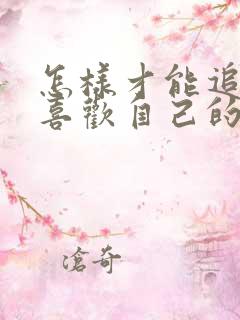 怎樣才能追
喜歡自己的
滄奇